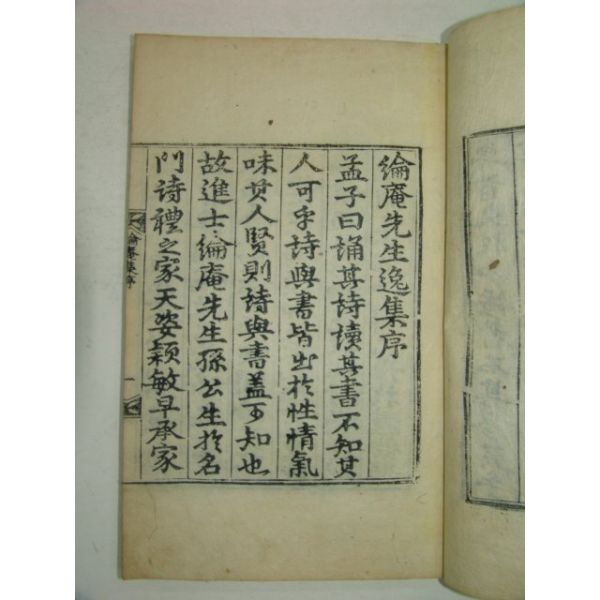 綸庵先生逸集序
孟子曰誦其詩讀其書不知其
人可乎詩與書皆出於性情氣
味其人賢則詩與書盖可知也
故進士綸庵先生孫公生於名
門詩禮之家天姿穎敏早承家
綸菴集序
一